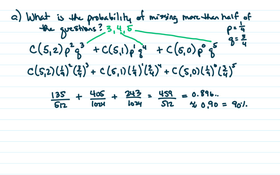 a) What is the probability of missing more than half of
the questions? 3, 4, 5
p = 1/4
q = 3/4
C(5,2) p² q³ + C(5,1) p¹ q⁴ + C(5,0) p⁰ q⁵
C(5,2)(1/4)²(3/4)³ + C(5,1)(1/4)¹(3/4)⁴ + C(5,0)(1/4)⁰(3/4)⁵
135/512 + 405/1024 + 243/1024 = 459/512 = 0.896..
≈ 0.90 = 90%